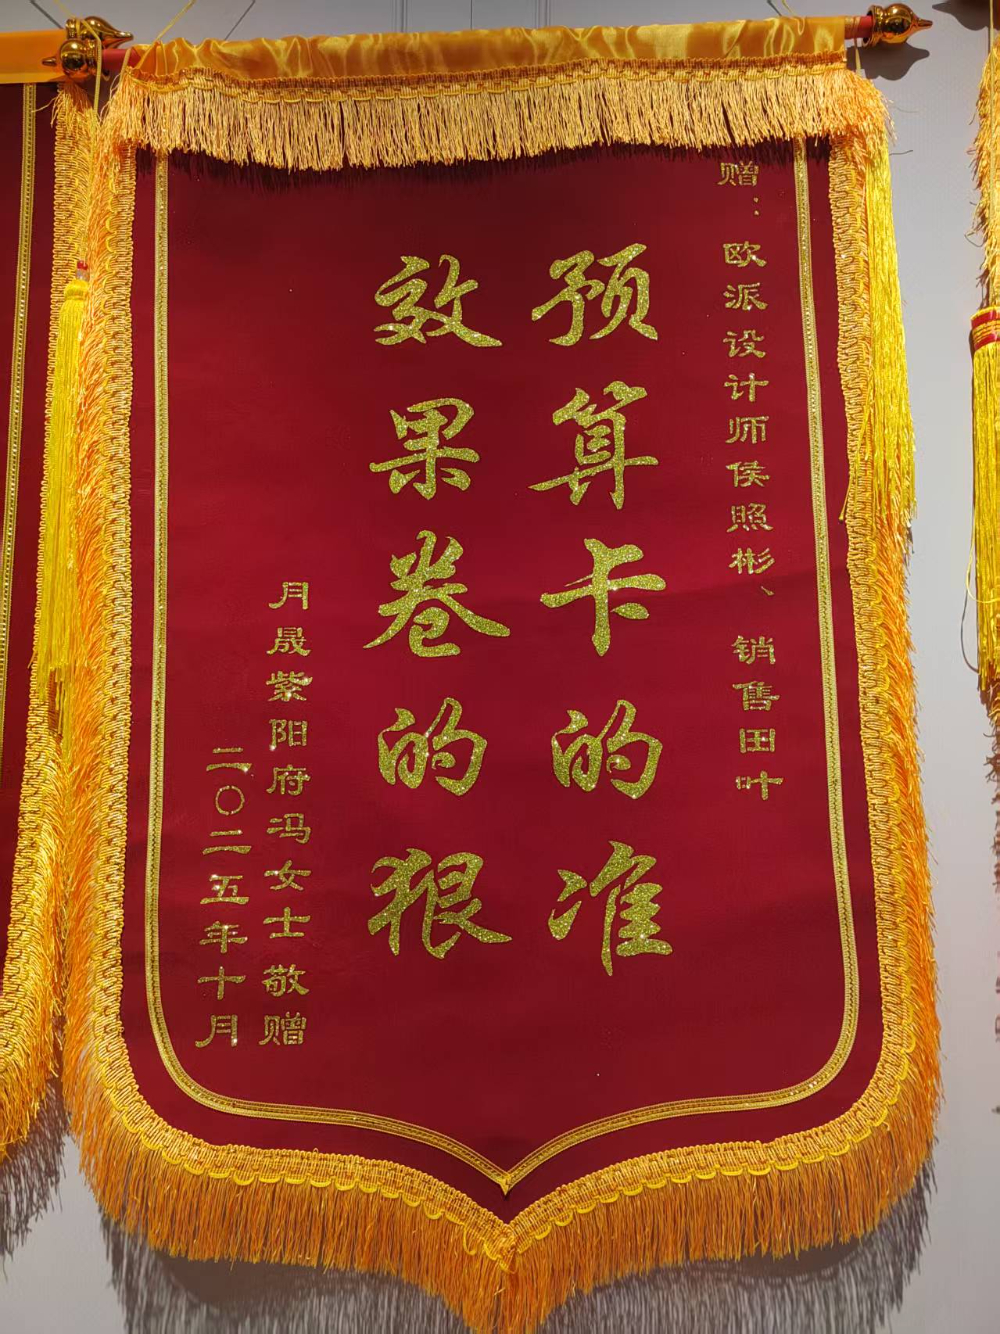 赠：欧派设计师侯照彬、销售田叶
预算卡的准
效果卷的狠
月晟紫阳府冯女士敬赠
二〇二五年十月